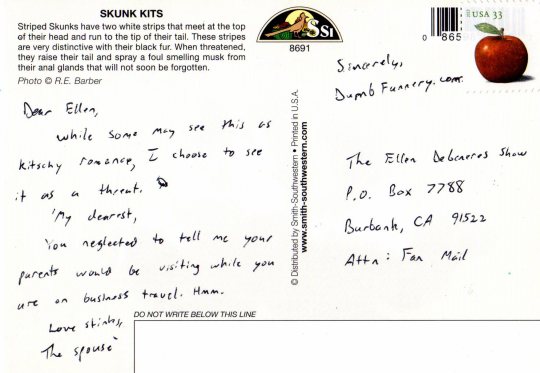 SKUNK KITS
Striped Skunks have two white strips that meet at the top
of their head and run to the tip of their tail. These stripes
are very distinctive with their black fur. When threatened,
they raise their tail and spray a foul smelling musk from
their anal glands that will not soon be forgotten.
Photo © R.E. Barber
Dear Ellen,
while some may see this as
kitschy romance, I choose to see
it as a threat.
"My dearest,
You neglected to tell me your
parents would be visiting while you
are on business travel. Hmm.
Love stinks,
The spouse"
SSI
8691
© Distributed by Smith-Southwestern • Printed in U.S.A.
www.smith-southwestern.com
0 865
USA 33
Sincerely,
DumbFunnery.com
The Ellen DeGeneres Show
P.O. Box 7788
Burbank, CA 91522
Attn: Fan Mail
DO NOT WRITE BELOW THIS LINE